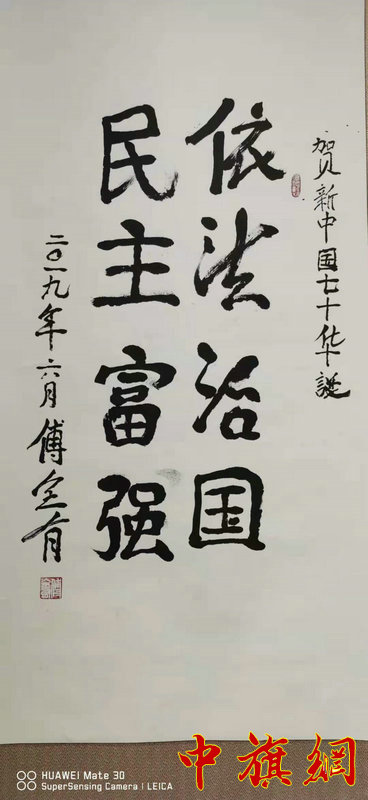 贺新中国七十华誕
依法治国
民主富强
二〇一九年六月傅全有
HUAWEI Mate 30
SuperSensing Camera | LEICA
中旗網